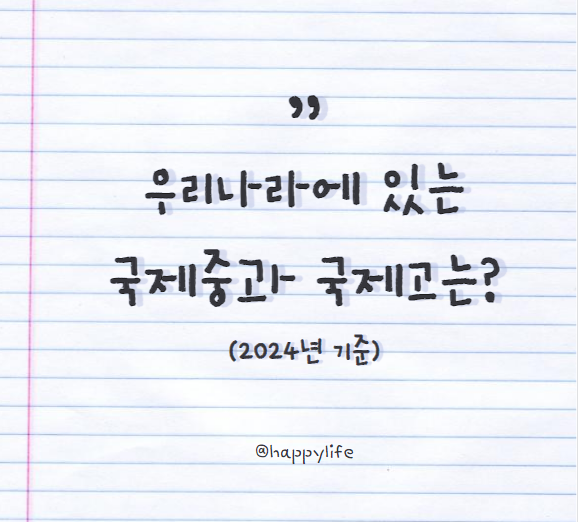 ”
우리나라에 있는
국제중과 국제고는?
(2024년 기준)
@happylife